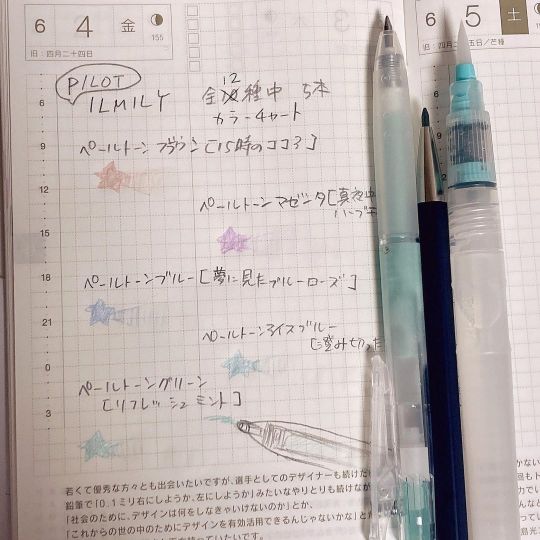 6 4 金
155
旧：四月二十四日
PILOT
ILMILY
全12種中 5本
カラーチャート
6
ペールトーンブラウン[15時のココア]
9
12
ペールトーンマゼンタ[真夜中
15
18
ペールトーンブルー[夢に見たブルーローズ]
21
ペールトーンアイスブルー
[澄み切った
0
ペールトーングリーン
[リフレッシュミント]
3
若くて優秀な方々とも出会いたいですが、選手としてのデザイナーも続けた
鉛筆で「0.1ミリ右にしようか、左にしようか」みたいなやりとりも続けなが
「社会のために、デザインは何をしなきゃいけないのか」とか、
「これからの世の中のためにデザインを有効活用できるんじゃないかな」と
6 5 土
五日／芒種